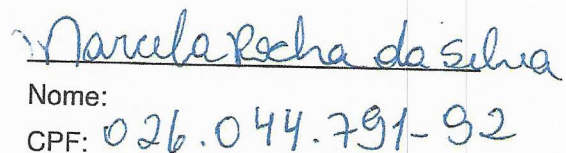 Marcela Rocha da Silva
Nome:
CPF: 026.044.791-92